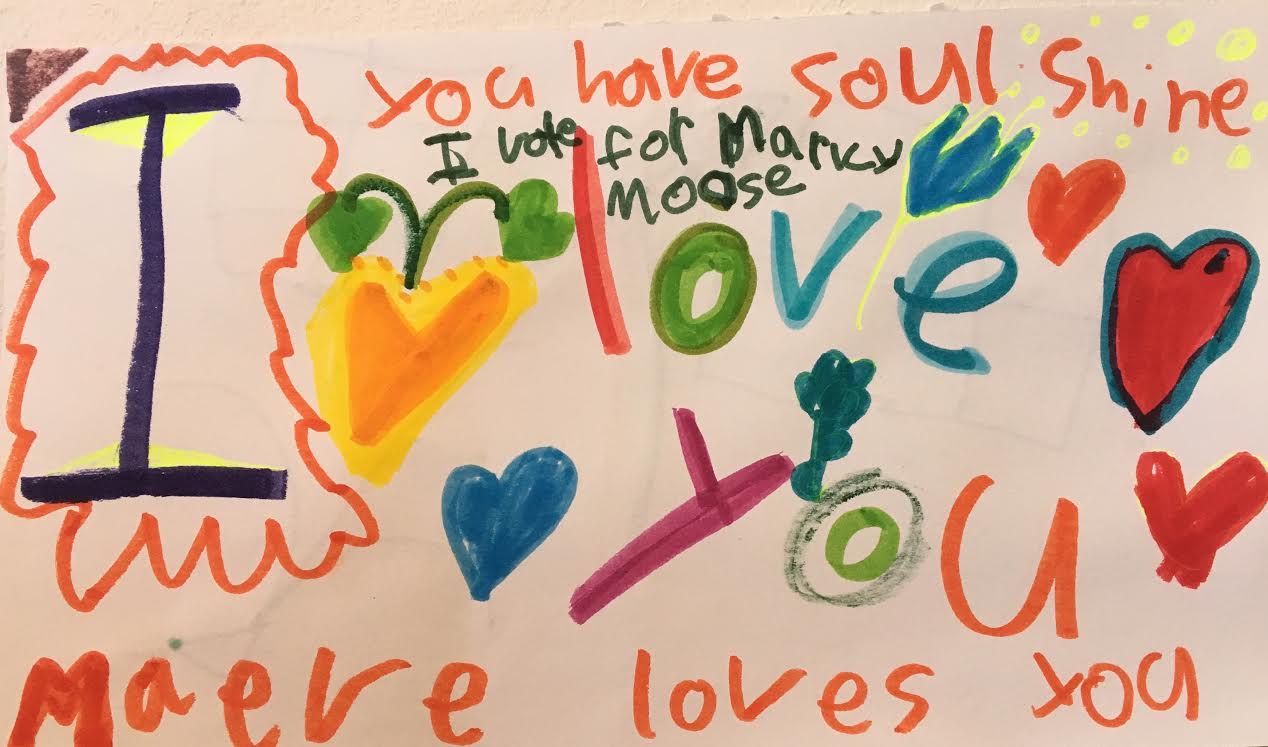 you have soul shine
I vote for Marky
moose
I love
you
Maeve loves you